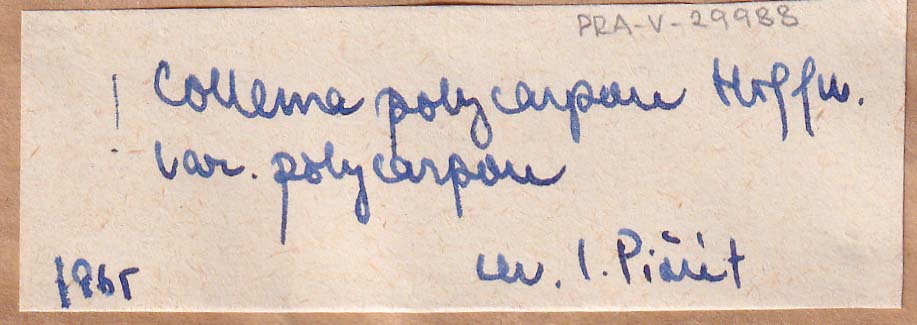 PRA-V-29988
! Collema polycarpon Hoffm.
var. polycarpon
1965 rev. I. Pišút